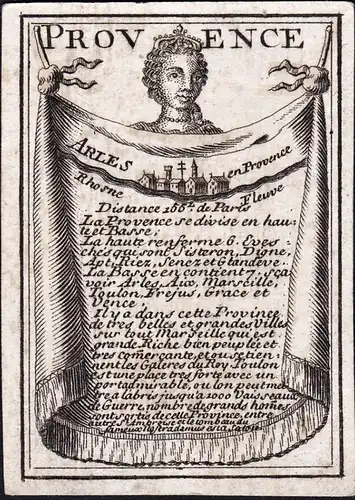 PROVENCE
ARLES en Provence
Rhosne Fleuve
Distance 166 de Paris
La Provence se divise en hau-
te et Basse;
La haute renferme 6. Eves-
chés qui sont Sisteron, Digne,
Apt, Riez, Senez et Glandeve.
La Basse en contient 7. sça
voir Arles, Aix, Marseille,
Toulon, Frejus, Grace et
Vence;
Il y a dans cette Province
de tres belles et grandes Villes
sur tout Marseille qui est
grande Riche bien peuplée et
tres comerçante, et ou se tien-
nent les Galeres du Roy Toulon
est une place tres forte avec un
port admirable, ou l'on peut met
tre a l'abris jusqu'a 1000 Vaisseaux
de Guerre, nombre de grands homes
sont sortis de cette Province, entre
autre St. Ambroise et le tombeau du
fameux Nostradamus est a Salon.